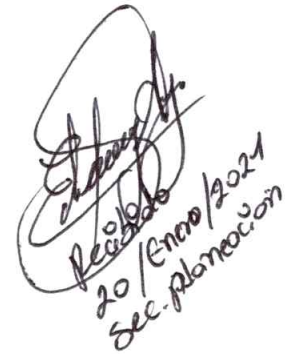 Recibido
20/Enero/2021
Sec. Planeación